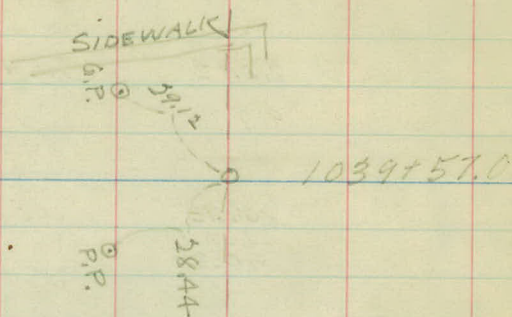 SIDEWALK
G.P.
39.12
1039+57.0
P.P.
38.44